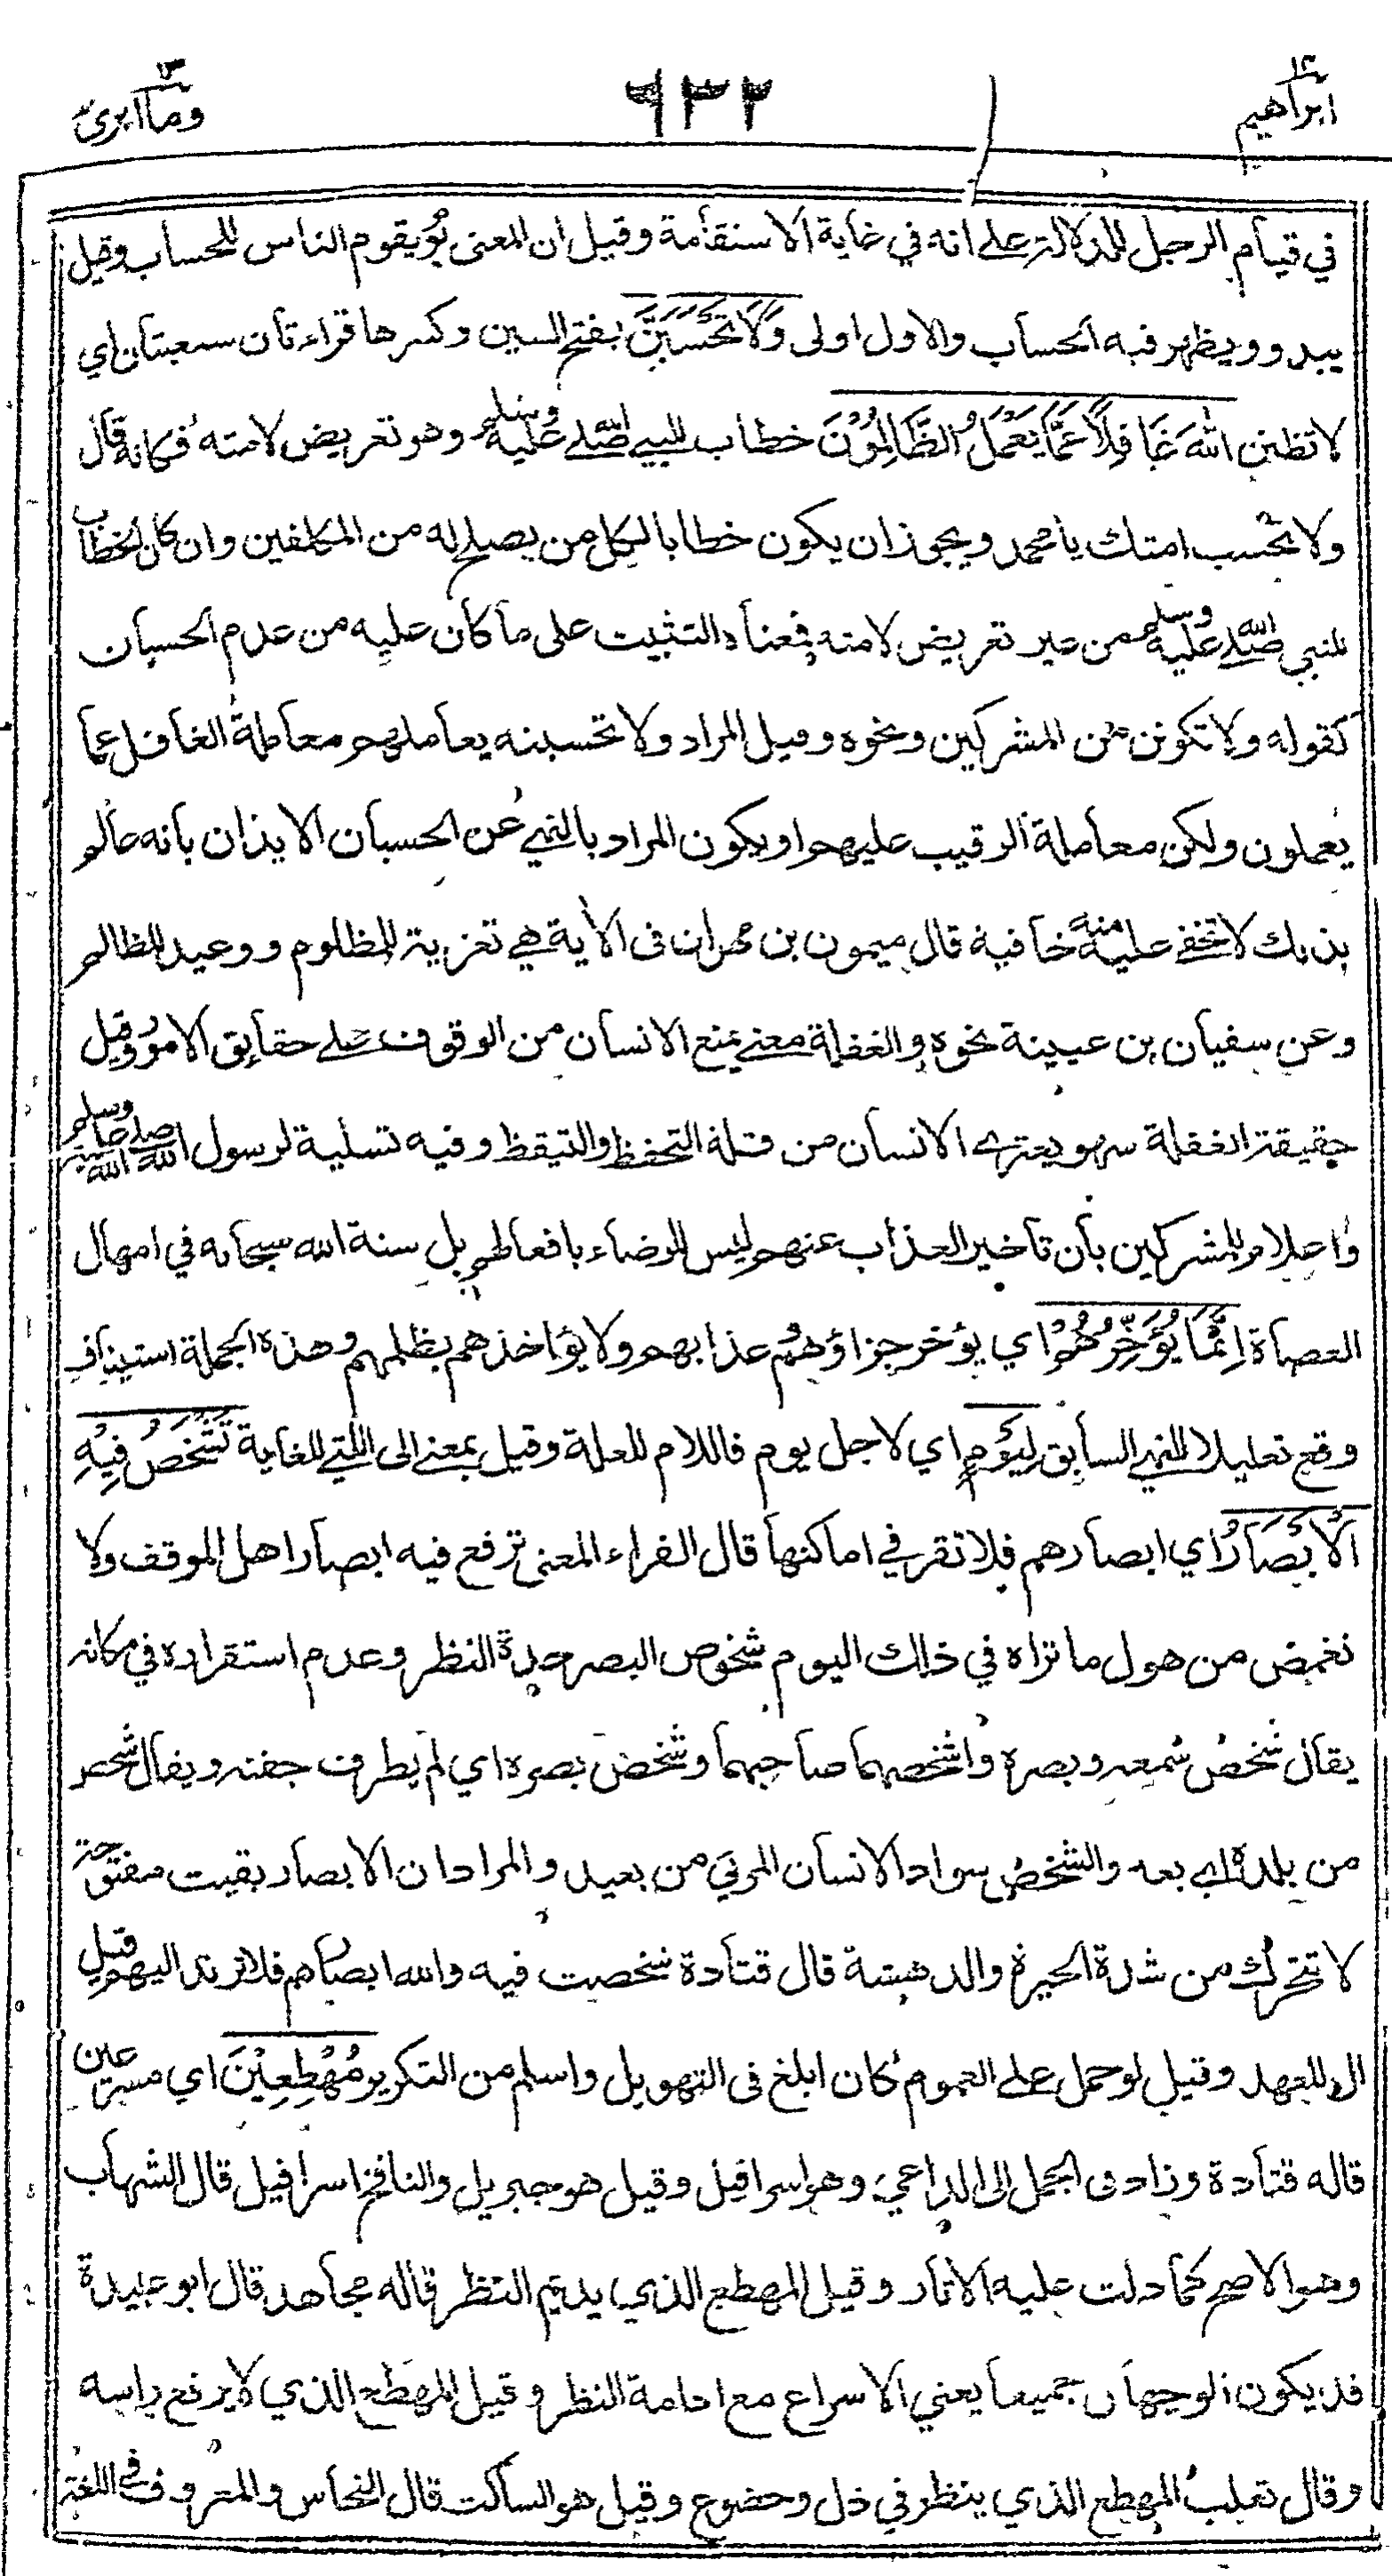 ابراهيم ١٤
٦٣٢
وما ابرئ ١٣
في قيام الرجل للدلالة على انه في غاية الاستقامة وقيل ان المعنى يوم يقوم الناس للحساب وقيل
يبدو ويظهر فيه الحساب والاول اولى وَلَا تَحْسَبَنَّ بفتح السين وكسرها قراءتان سبعيتان اي
لا تظنن اللّٰهَ غَافِلًا عَمَّا يَعْمَلُ الظَّالِمُوْنَ خطاب للنبي صلى الله عليه وسلم وهو تعريض لامته فكانه قال
ولا تحسب امتك يا محمد ويجوز ان يكون خطابا لكل من يصلح له من المكلفين وان كان الخطاب
للنبي صلى الله عليه وسلم من غير تعريض لامته فمعناه التثبيت على ما كان عليه من عدم الحسبان
كقوله ولا تكونن من المشركين ونحوه وقيل المراد ولا تحسبنه يعاملهم معاملة الغافل عما
يعملون ولكن معاملة الرقيب عليهم او يكون المراد بالنهي عن الحسبان الايذان بانه عالم
بذلك لا تخفى عليه منه خافية قال ميمون بن مهران في الاية هي تعزية للمظلوم ووعيد للظالم
وعن سفيان بن عيينة نحوه والغفلة معنى يمنع الانسان من الوقوف على حقايق الامور وقيل
حقيقة الغفلة سهو يعتري الانسان من قلة التحفظ والتيقظ وفيه تسلية لرسول الله صلى الله عليه وسلم
واعلام للمشركين بان تاخير العذاب عنهم ليس للرضاء بافعالهم بل سنة الله سبحانه في امهال
العصاة اِنَّمَا يُؤَخِّرُهُمْ اي يؤخر جزاؤهم عذابهم ولا يؤاخذهم بظلمهم وهذه الجملة استيناف
وقع تعليلا للنهي السابق لِيَوْمٍ اي لاجل يوم فاللام للعلة وقيل بمعنى الى التي للغاية تَشْخَصُ فِيْهِ
الْاَبْصَارُ اي ابصارهم فلا تقر في اماكنها قال الفراء المعنى ترفع فيه ابصار اهل الموقف ولا
تغمض من هول ما تراه في ذلك اليوم شخوص البصر حدة النظر وعدم استقراره في مكانه
يقال شخص سمعه وبصره واشخصهما صاحبهما وشخص بصره اي لم يطرف جفنه ويقال شخص
من بلده اي بعد والشخص سواد الانسان المرئي من بعيد والمراد ان الابصار بقيت مفتوحة
لا تتحرك من شدة الحيرة والدهشة قال قتادة شخصت فيه والله ابصارهم فلا ترتد اليهم قيل
ال للعهد وقيل لو حمل على العموم كان ابلغ في التهويل واسلم من التكرير مُهْطِعِيْنَ اي مسرعين
قاله قتادة وزاد في الجمل الى الداعي وهو اسرافيل وقيل هو جبريل والنافخ اسرافيل قال الشهاب
وهو الاصح كما دلت عليه الاثار وقيل المهطع الذي يديم النظر قاله مجاهد قال ابو عبيدة
قد يكون الوجهان جميعا يعني الاسراع مع ادامة النظر وقيل المهطع الذي لا يرفع راسه
وقال ثعلب المهطع الذي ينظر في ذل وخضوع وقيل هو الساكت قال النحاس والمعروف في اللغة